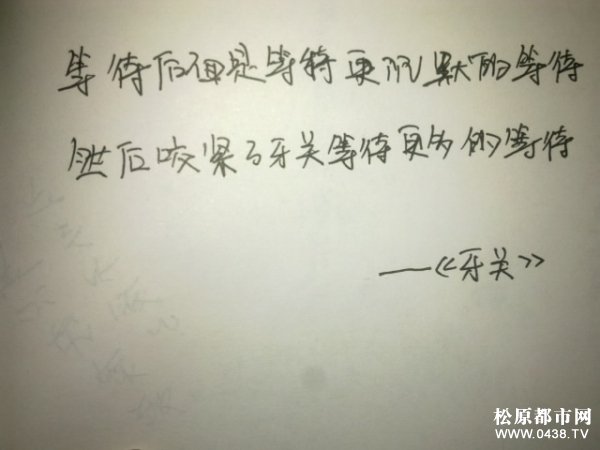 等待后面是等待更沉默的等待
然后咬紧了牙关等待更多的等待
——《牙关》
松原都市网
WWW.0438.TV